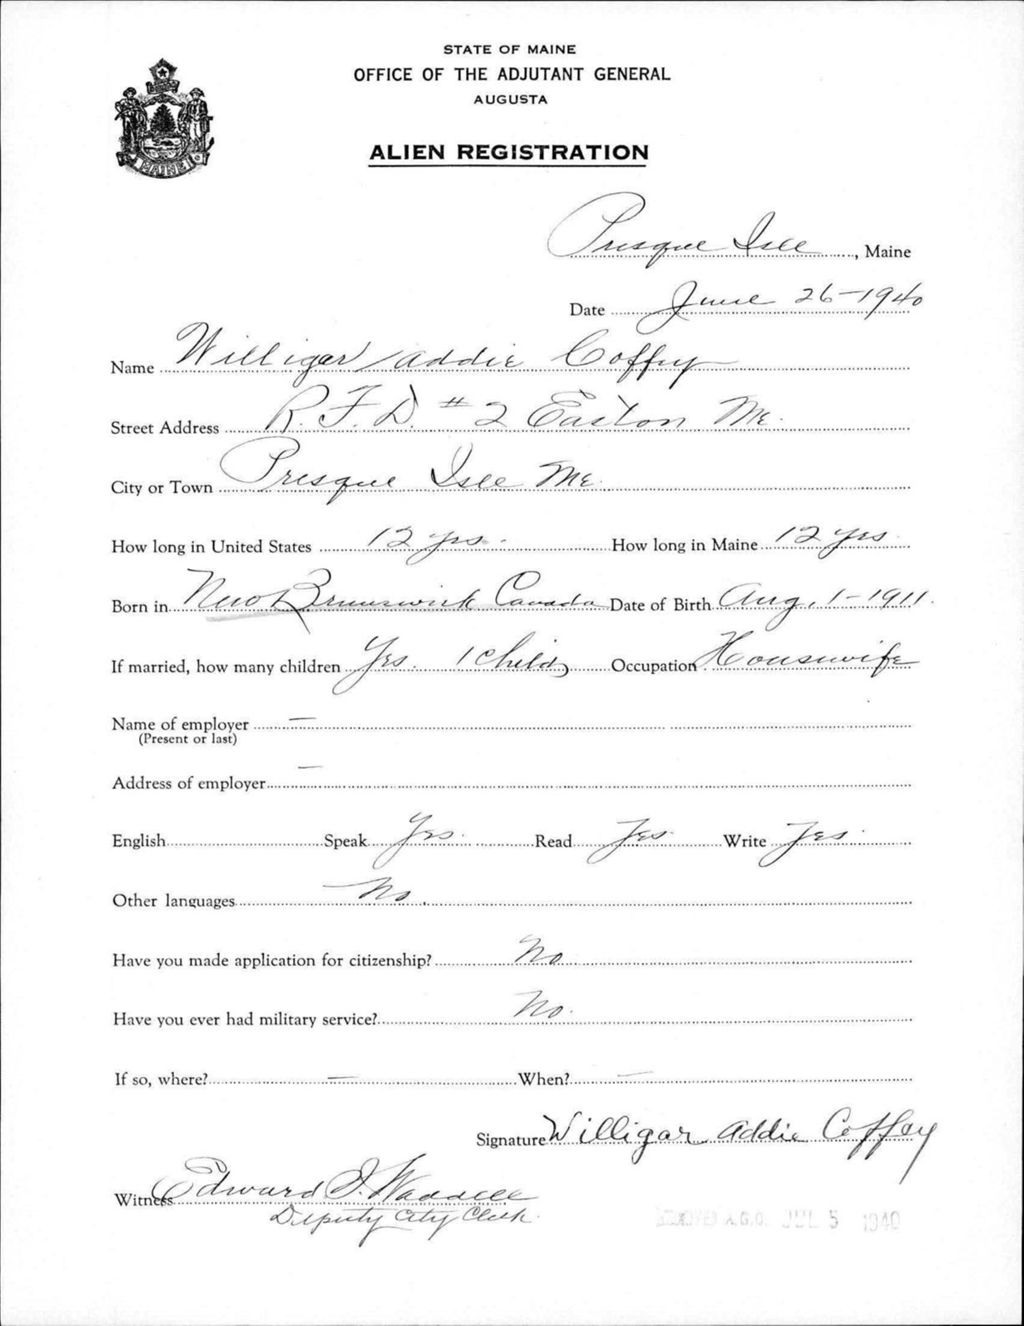 STATE OF MAINE
OFFICE OF THE ADJUTANT GENERAL
AUGUSTA
ALIEN REGISTRATION
MAINE
Presque Isle, Maine
Date June 26-1940
Name Willigar Addie Coffey
Street Address R.F.D. #2 Easton Me.
City or Town Presque Isle Me.
How long in United States 12 yrs. How long in Maine 12 yrs
Born in New Brunswick Canada Date of Birth Aug, 1-1911.
If married, how many children Yes. 1 Child Occupation Housewife
Name of employer —
(Present or last)
Address of employer —
English Speak Yes. Read Yes. Write Yes.
Other languages No.
Have you made application for citizenship? No.
Have you ever had military service? No.
If so, where? — When? —
Signature Willigar Addie Coffey
Witness Edward I. Waddell
Deputy City Clerk.
A.G.O. JUL 5 1940